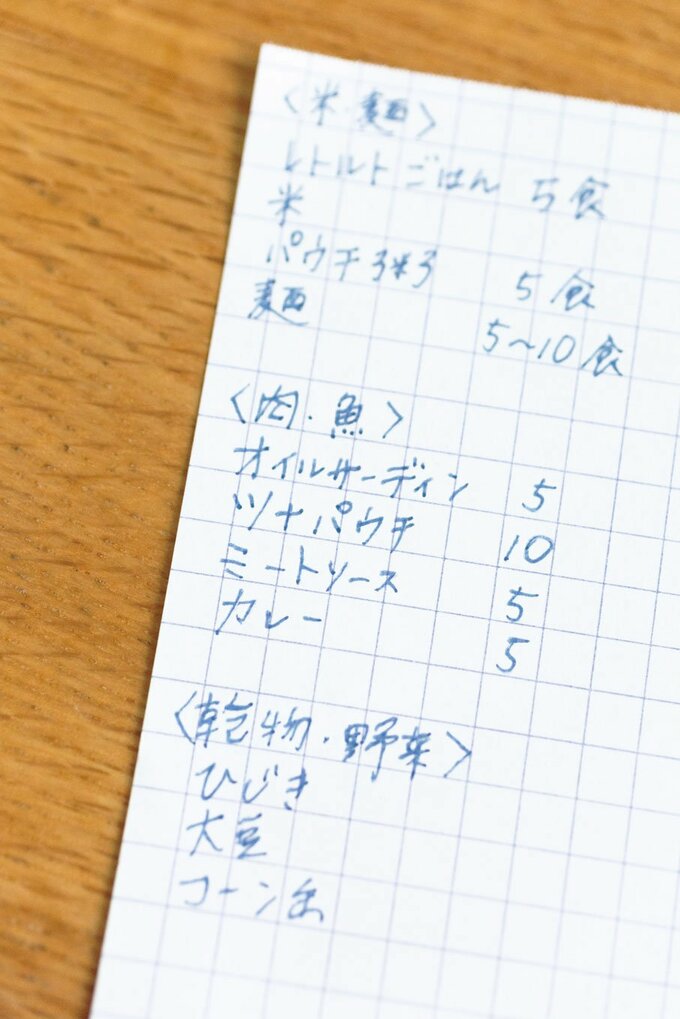 〈米・麺〉
レトルトごはん 5食
米
パウチ粥 5食
麺 5〜10食
〈肉・魚〉
オイルサーディン 5
ツナパウチ 10
ミートソース 5
カレー 5
〈乾物・野菜〉
ひじき
大豆
コーン缶